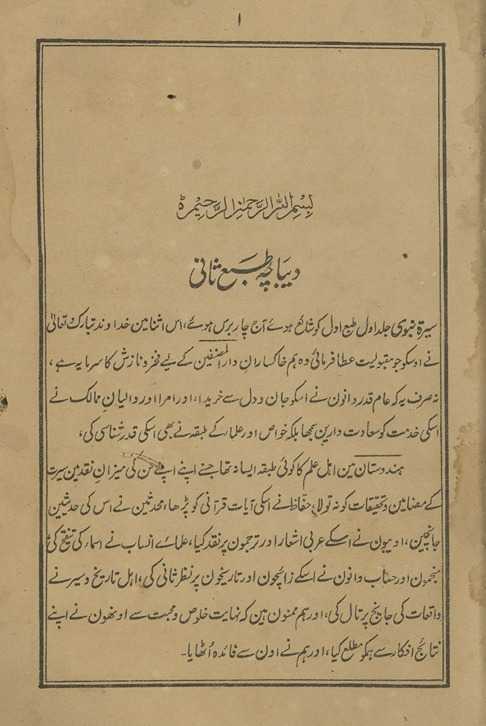 ۱
بِسْمِ اللهِ الرَّحْمٰنِ الرَّحِیْمِ ہ
دیباچہ طبع ثانی
سیرۃ نبوی جلد اول طبع اول کو شائع ہوے آج چار برس ہوے، اس اثنا مین خداوند تبارک تعالیٰ
نے اوسکو جو مقبولیت عطا فرمائی وہ ہم خاکساران دار المصنفین کے لیے فخر و نازش کا سرمایہ ہے،
نہ صرف یہ کہ عام قدر دانون نے اسکو جان و دل سے خریدا، اور امرا اور والیانِ ممالک نے
اسکی خدمت کو سعادت دارین سمجھا بلکہ خواص اور علماء کے طبقہ نے بھی اسکی قدر شناسی کی،
ہندوستان مین اہل علم کا کوئی طبقہ ایسا نہ تھا جسنے اپنے اپنے فن کی میزانِ نقد مین سیرت
کے مضامین و تحقیقات کو نہ تولا، حفّاظ نے اسکی آیات قرآنی کو پڑھا، محدثین نے اس کی حدثین
جانچین، ادیبون نے اسکے عربی اشعار اور ترجمون پر نقد کیا، علمائے انساب نے اسماء کی تنقیح کی،
منجمون اور حساب دانون نے اسکے زائچون اور تاریخون پر نظر ثانی کی، اہل تاریخ و سیر نے
واقعات کی جانچ پرتال کی، اور ہم ممنون ہین کہ نہایت خلوص و محبت سے اونھون نے اپنے
نتائج افکار سے ہمکو مطلع کیا، اور ہم نے اون سے فائدہ اُٹھایا۔